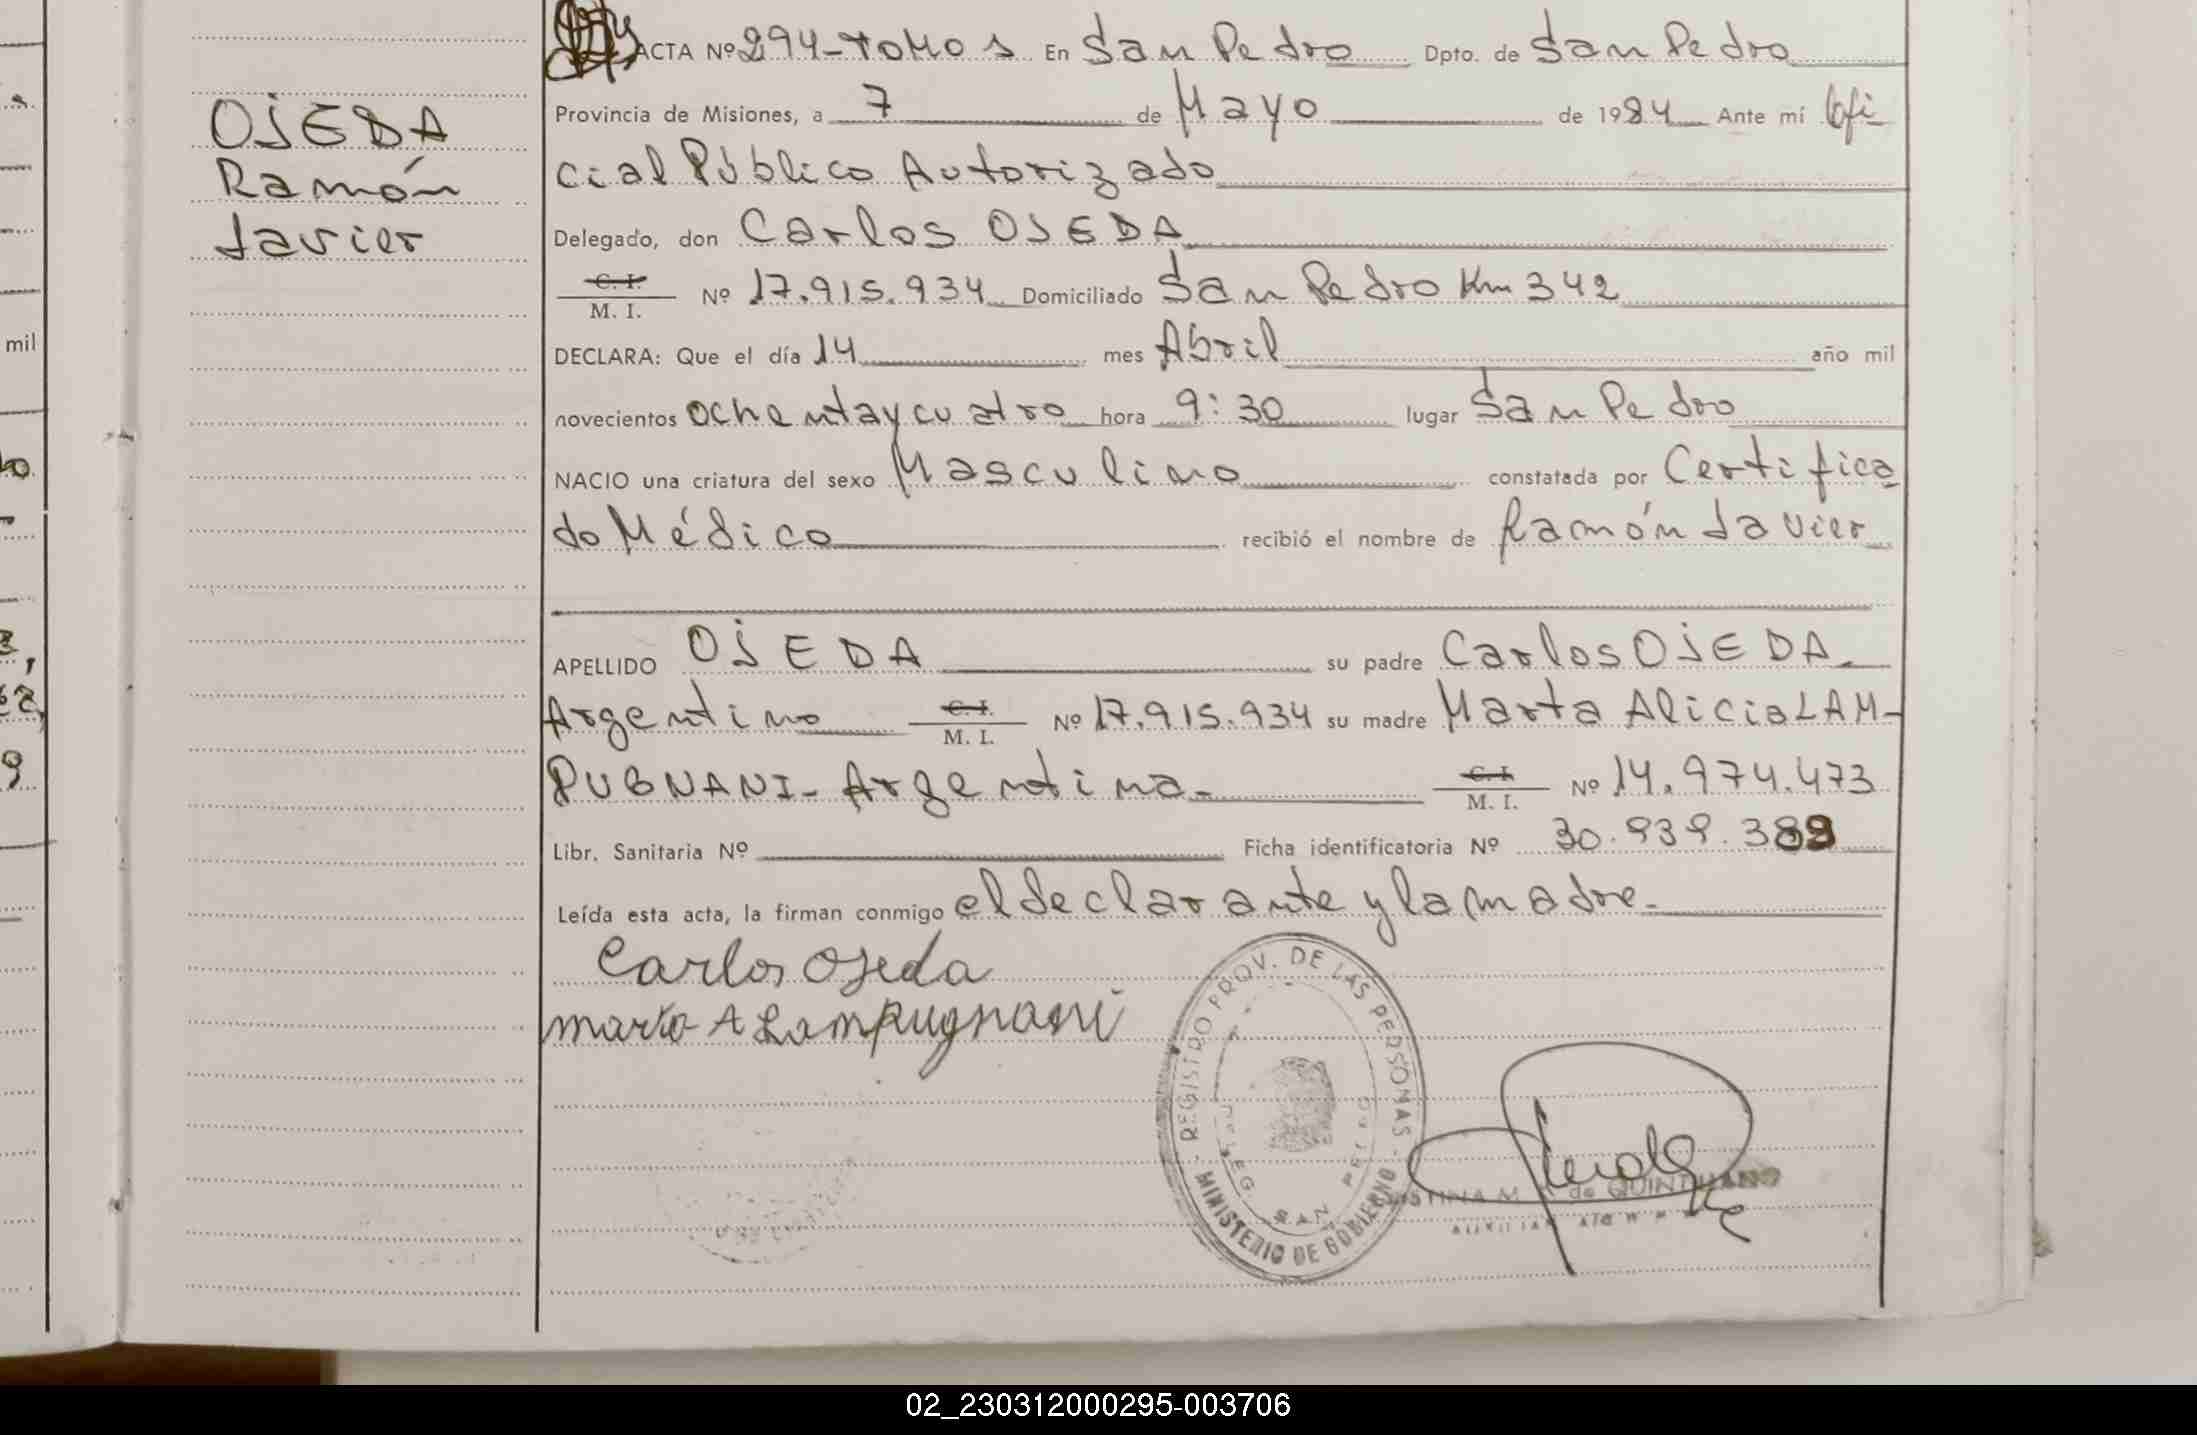 ACTA Nº 294-TOMO 1 En San Pedro Dpto. de San Pedro
OJEDA
Ramón
Javier
Provincia de Misiones, a 7 de Mayo de 1984 Ante mí Ofi
cial Público Autorizado
Delegado, don Carlos OJEDA
C. I.
M. I. Nº 17.915.934 Domiciliado San Pedro Km 342
DECLARA: Que el día 14 mes Abril año mil
novecientos ochentaycuatro hora 9:30 lugar San Pedro
NACIO una criatura del sexo Masculino constatada por Certifica
do Médico recibió el nombre de Ramón Javier
APELLIDO OJEDA su padre Carlos OJEDA.
Argentino C. I. M. I. Nº 17.915.934 su madre Marta Alicia LAM-
PUGNANI- Argentina- C. I. M. I. Nº 14.974.473
Libr. Sanitaria Nº Ficha identificatoria Nº 30.939.389
Leída esta acta, la firman conmigo el declarante y la madre.-
Carlos Ojeda
Marta A Lampugnani
REGISTRO PROV. DE LAS PERSONAS
MINISTERIO DE GOBIERNO
SAN PEDRO
de QUINTILIANO
mil
02_230312000295-003706